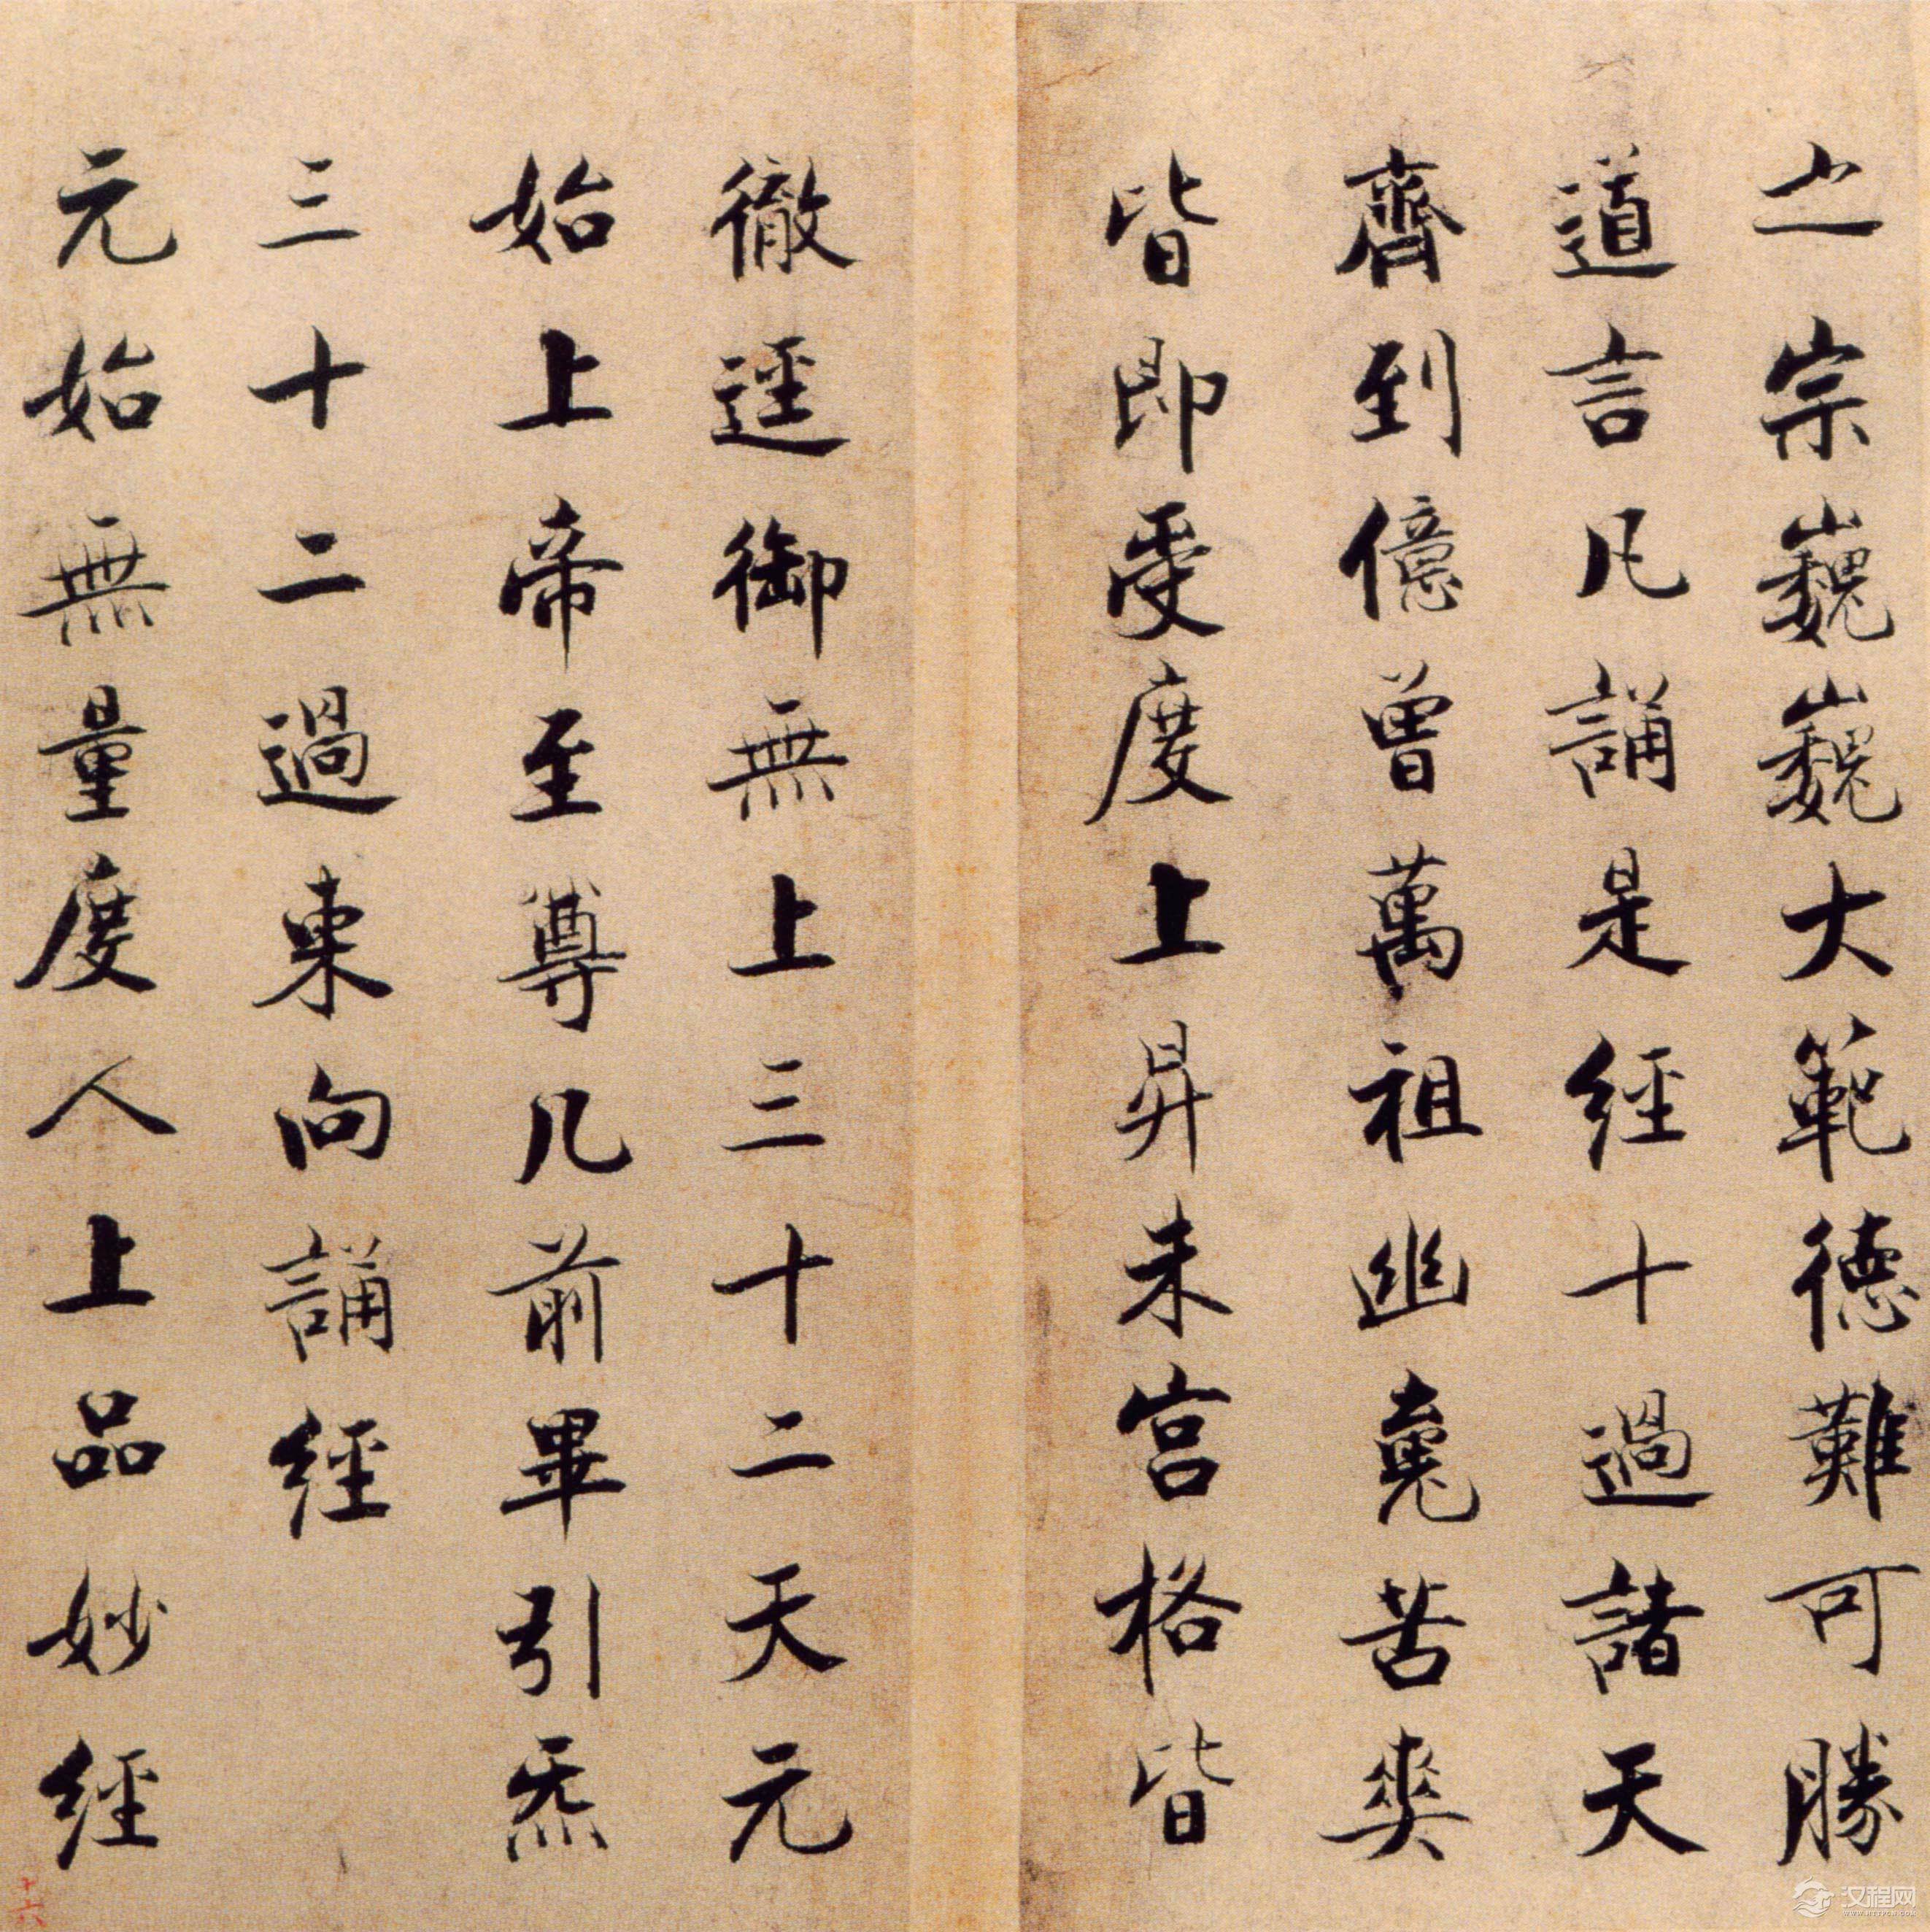 之宗巍巍大範德難可勝
道言凡誦是經十過諸天
齊到億曾萬祖幽魂苦爽
皆即受度上昇朱宮格皆
徹逕御無上三十二天元
始上帝至尊几前畢引炁
三十二過東向誦經
元始無量度人上品妙經
十六
汉程网
WWW.HTTPCN.COM